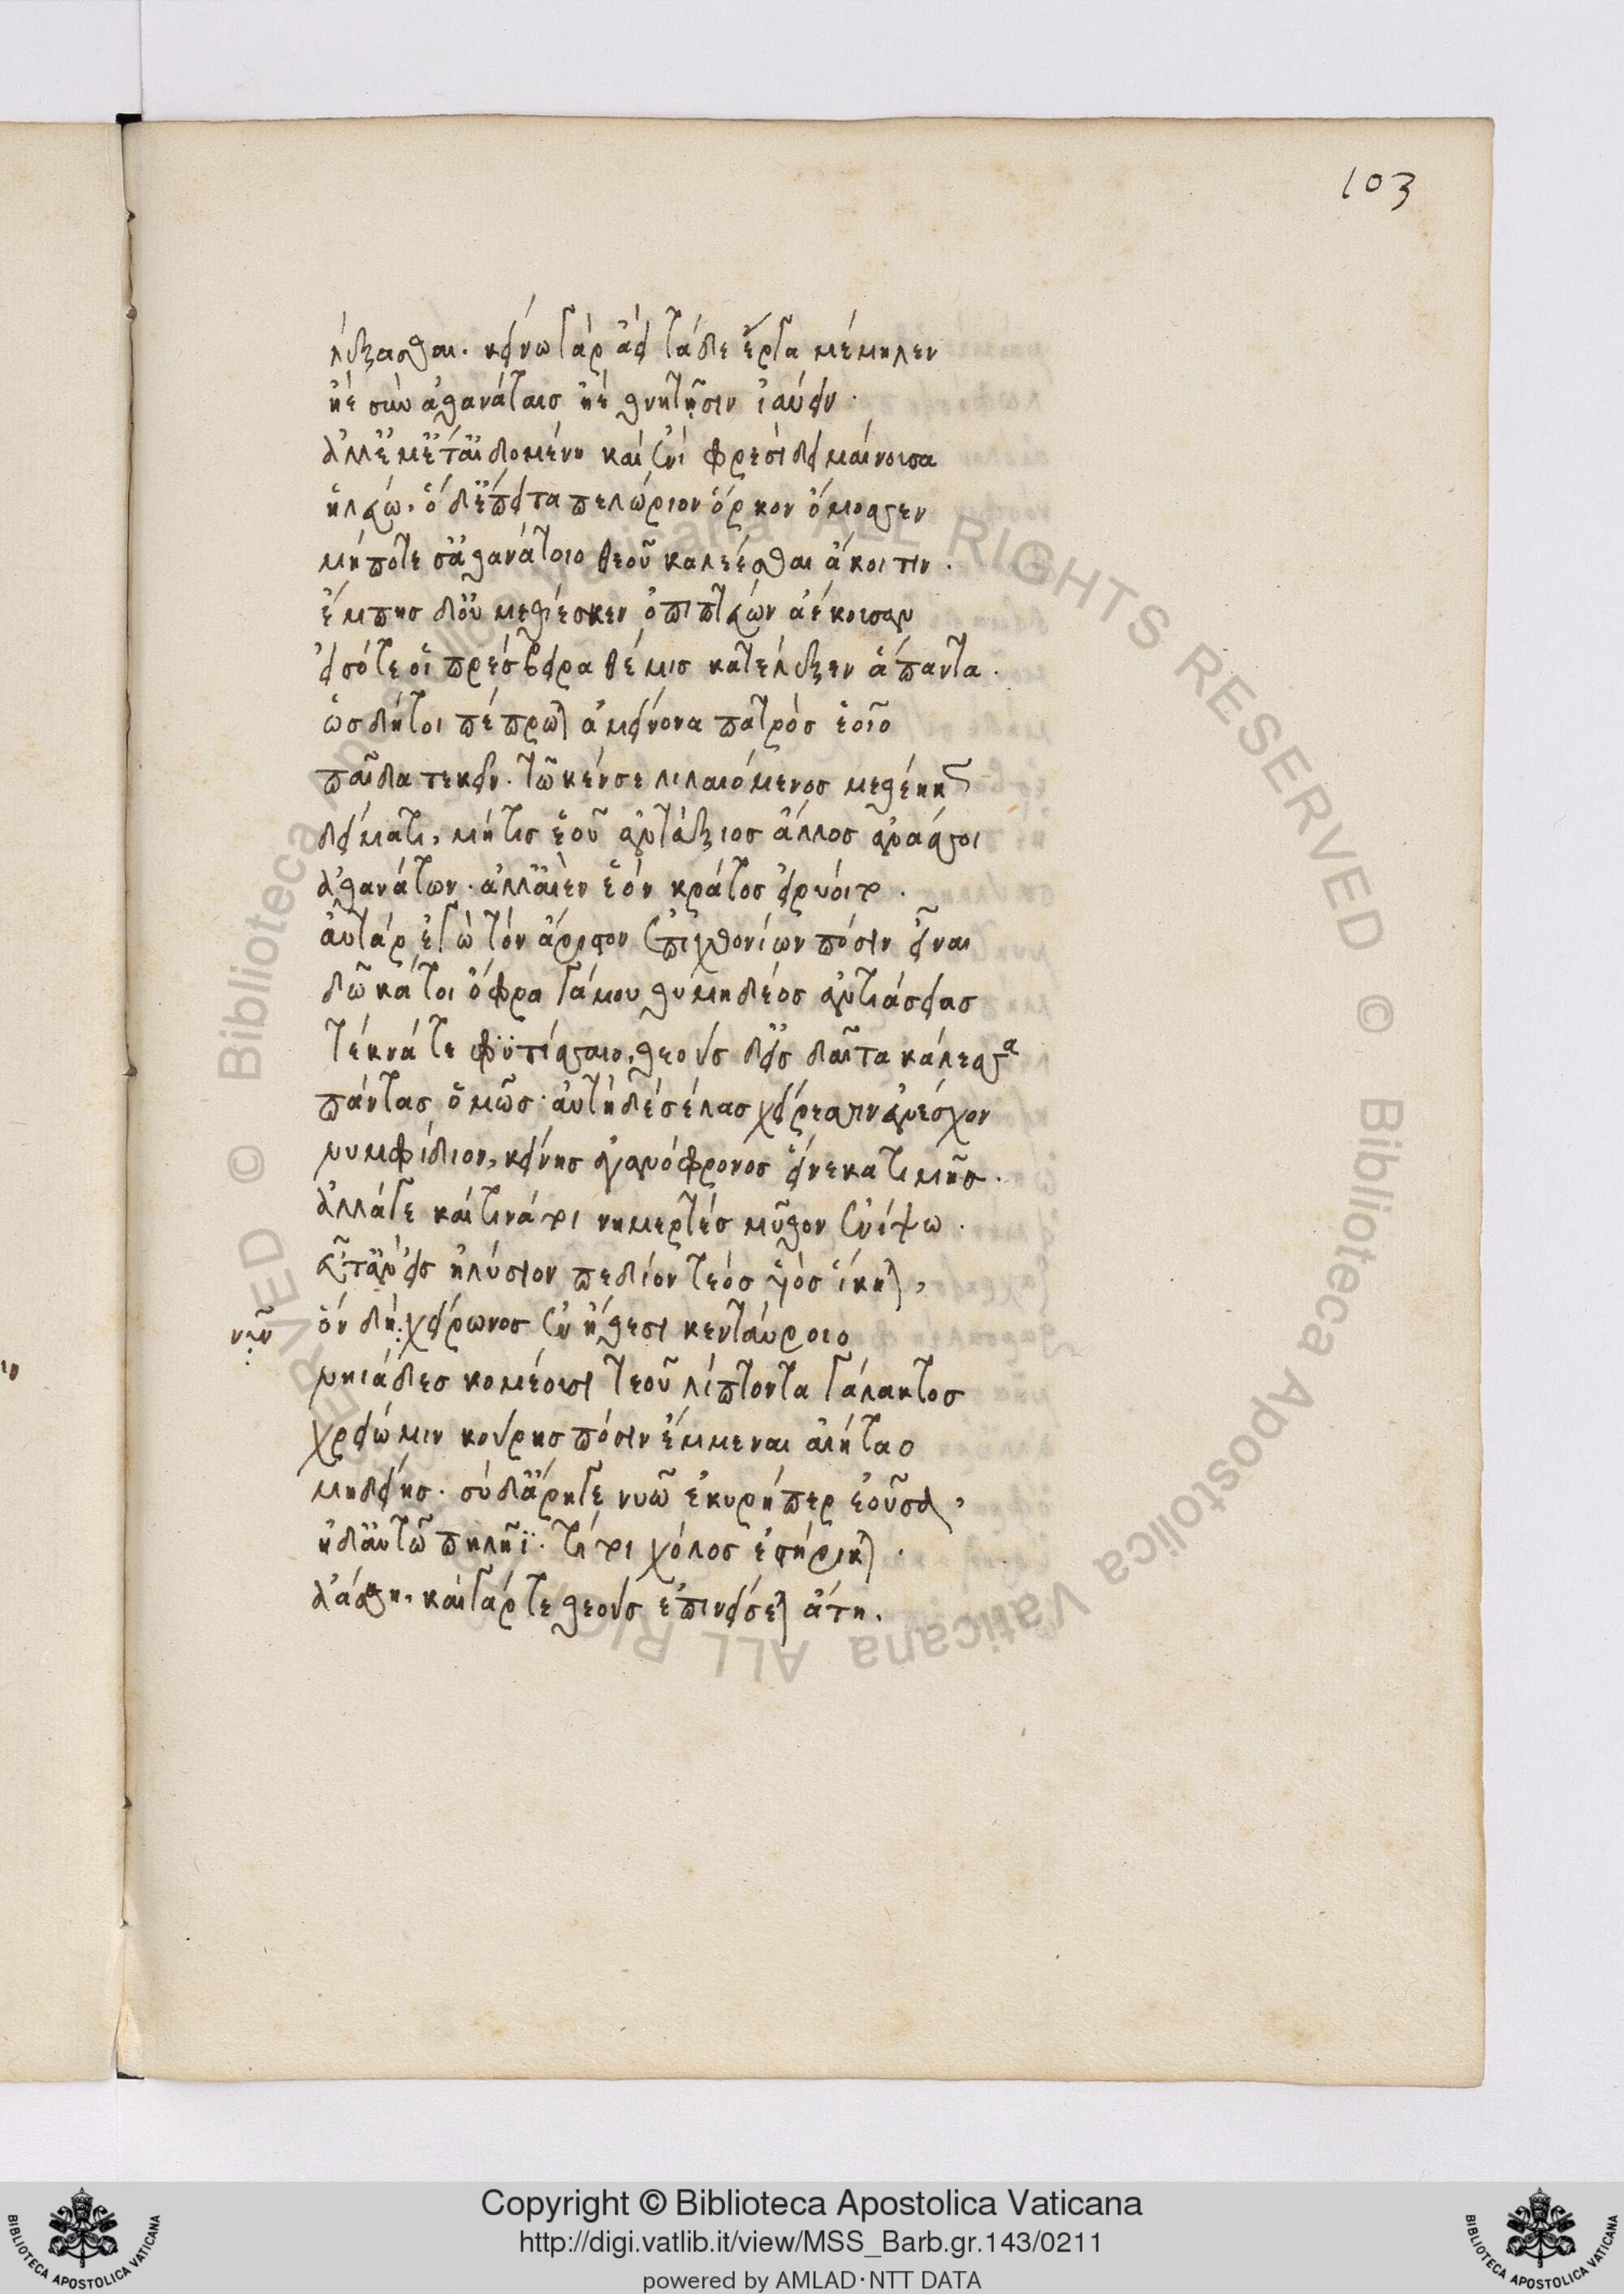 103
λέξασθαι. κείνω γὰρ ἀεὶ τάδε ἔργα μέμηλεν
ἠὲ σὺν ἀθανάταις ἠὲ θνητῇσιν ἰαύειν.
ἀλλ' ἐμέ τ' αἰδομένη καὶ ἐνὶ φρεσὶ δειμαίνουσα
ἠλεύω. ὁ δ' ἔπειτα πελώριον ὅρκον ὄμοσσεν
μήποτέ σ' ἀθανάτοιο θεοῦ καλέεσθαι ἄκοιτιν.
ἔμπης δ' οὐ μεθίεσκεν ὀπιπτεύων ἀέκουσαν
εἰσότε οἱ πρέσβειρα θέμις κατέλεξεν ἅπαντα.
ὡς δή τοι πέπρωται ἀμείνονα πατρὸς ἑοῖο
παῖδα τεκεῖν. τῶ καί σε λιλαιόμενος μεθέηκε
δείματι, μή τις ἑοῦ ἀντάξιος ἄλλος ἀνάσσοι
ἀθανάτων. ἀλλ' αἰὲν ἑὸν κράτος εἰρύοιτο.
αὐτὰρ ἐγὼ τὸν ἄριστον ἐπιχθονίων πόσιν εἶναι
δῶκά τοι ὄφρα γάμου θυμηδέος ἀντιάσειας
τέκνά τε φϋτίσαιο, θεοὺς δ' εἰς δαῖτα κάλεσσα
πάντας ὁμῶς. αὐτὴ δὲ σέλας χείρεσσιν ἀνέσχον
νυμφίδιον, κείνης ἀγανόφρονος εἵνεκα τιμῆς.
ἀλλ' ἄγε καί τινά τοι νημερτέα μῦθον ἐνίψω.
εὖτ' ἂν ἐς ἠλύσιον πεδίον τεὸς υἱὸς ἵκηται,
ὃν δὴ χείρωνος ἐν ἤθεσι κενταύροιο
νῦν
νηιάδες κομέουσι τεοῦ λίπτοντα γάλακτος
χρειώ μιν κούρης πόσιν ἔμμεναι αἰήταο
μηδείης. σὺ δ' ἄρηγε νυῷ ἑκυρή περ ἐοῦσα,
ἠδ' αὐτῶ πηλῆϊ. τί τοι χόλος ἐστήρικται.
ἀάσθη. καὶ γάρ τε θεοὺς ἐπινείσεται ἄτη.
Copyright © Biblioteca Apostolica Vaticana
http://digi.vatlib.it/view/MSS_Barb.gr.143/0211
powered by AMLAD·NTT DATA